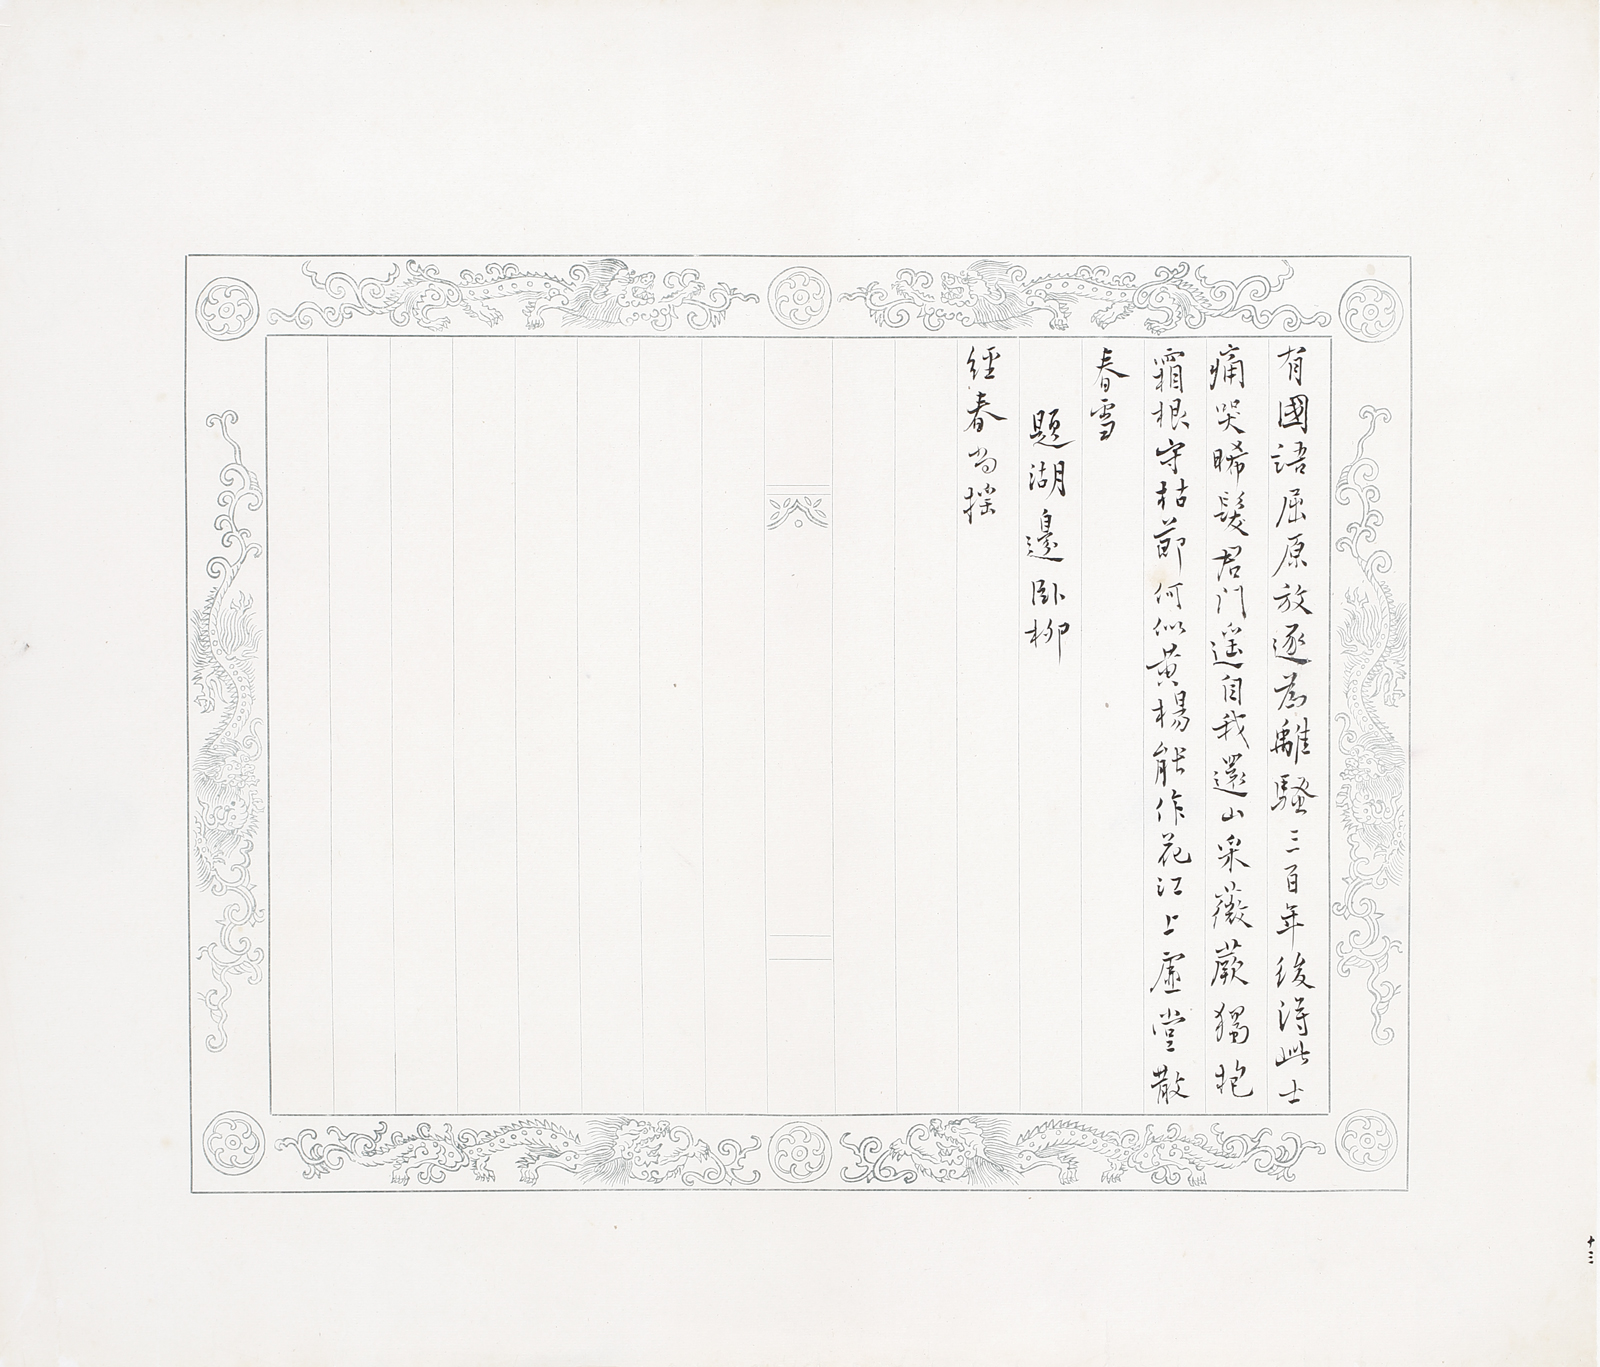 有國語屈原放逐為離騷三百年後得此士
痛哭晞髮君門遥自我還山采薇蕨獨抱
霜根守枯節何似黄楊能作花江上虛堂散
春雪
題湖邊卧柳
經春尚揺
十三